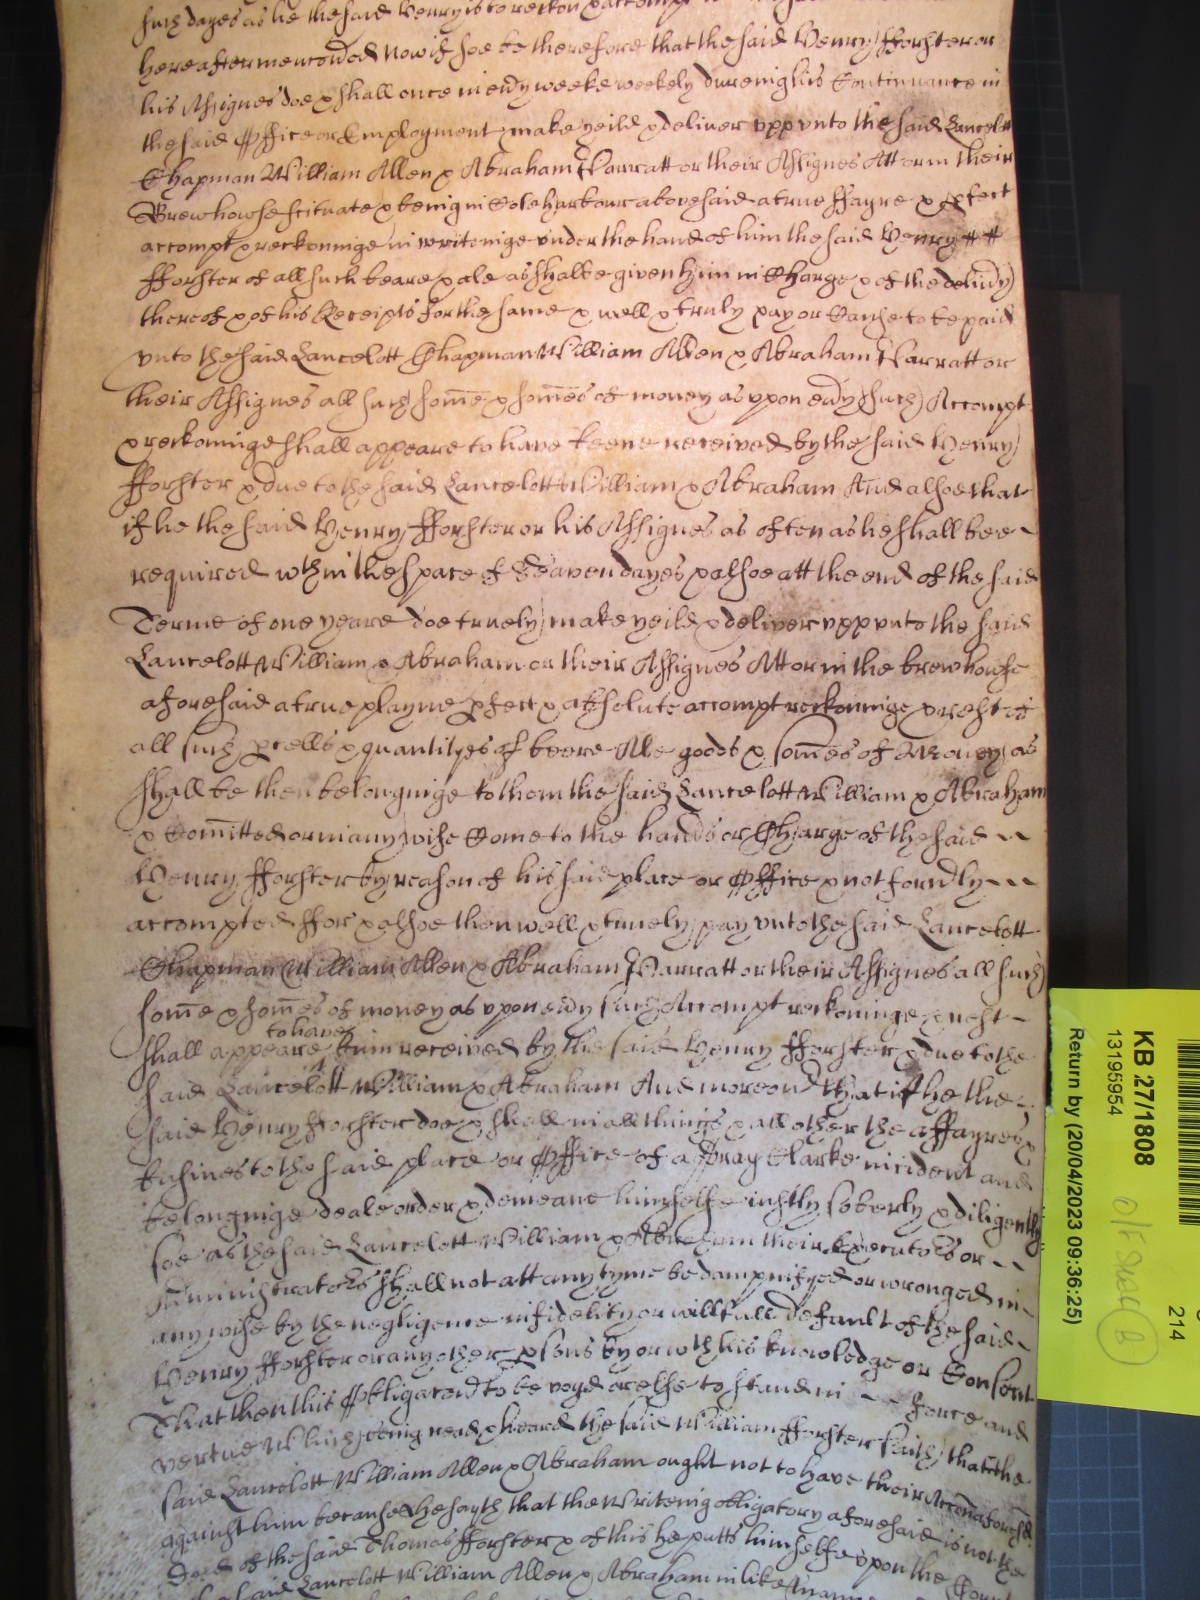 such dayes as he the said Henry is to reckon & accompt
hereafter menconed Now if soe be therefore that the said Henry fforster or
his Assignes doe & shall once in evy weeke weekely dureing his Continuance in
the said Office or Employment make yeild & deliver vpp vnto the said Lancelott
Chapman William Allen & Abraham Parratt or their Assignes Att or in their
Brewhowse scituate & being in Cole harbour abovesaid a true ffayre & pfect
accompt & reckoninge in writeinge vnder the hand of him the said Henry
fforster of all such beare & ale as shalbe given him in Charge & of the delivy
thereof & of his Receipts for the same & well & truly pay or Cause to be paid
vnto the said Lancelott Chapman William Allen & Abraham Parratt or
their Assignes all such some & somes of money as vpon evy such Accompt
& reckoninge shall appeare to have beene received by the said Henry
fforster & due to the said Lancelott William & Abraham And alsoe that
if he the said Henry fforster or his Assignes as often as he shall bee
required wthin the space of Seaven dayes & alsoe att the end of the said
Terme of one yeare doe truely make yeild & deliver vpp vnto the said
Lancelott William & Abraham or their Assignes Att or in the brewhowse
aforesaid a true playne pfect & absolute accompt reckoninge & rest of
all such pcells & quantityes of beere Ale goods & somes of Money as
shall be then belonginge to them the said Lancelott William & Abraham
& Comitted or in any wise Come to the hands or Charge of the said
Henry fforster by reason of his said place or Office & not formly
accompted ffor & alsoe then well & truely pay vnto the said Lancelott
Chapman William Allen & Abraham Parratt or their Assignes all such
some & somes of money as vpon evy such Accompt reckoninge & rest
to have
shall appeare bin received by the said Henry fforster & due to the
said Lancelott William & Abraham And moreov that if he the
said Henry fforster doe & shall in all things & all other the affayres &
busines to the said place or Office of a Clarke incident and
belonginge deale order & demeane himselfe iustly soberly & diligently
soe as the said Lancelott William & Abraham their Executors or
Administrators shall not att any tyme be dampnifyed or wronged in
any wise by the negligence infidelity or willfull default of the said
Henry fforster or any other psons by or wth his knowledge or Consent
That then this Obligacon to be voyd or else to stand in force and
vertue Which being read & heard the said William fforster saith that the
said Lancelott William Allen & Abraham ought not to have their Accon aforesd
against him because he sayth that the Writeing obligatory aforesaid is not the
deed of the said Thomas fforster & of this he putts himselfe vpon the
said Lancelott William Allen & Abraham in like
KB 27/1808
13195954
Return by (20/04/2023 09:36:25)
214
B